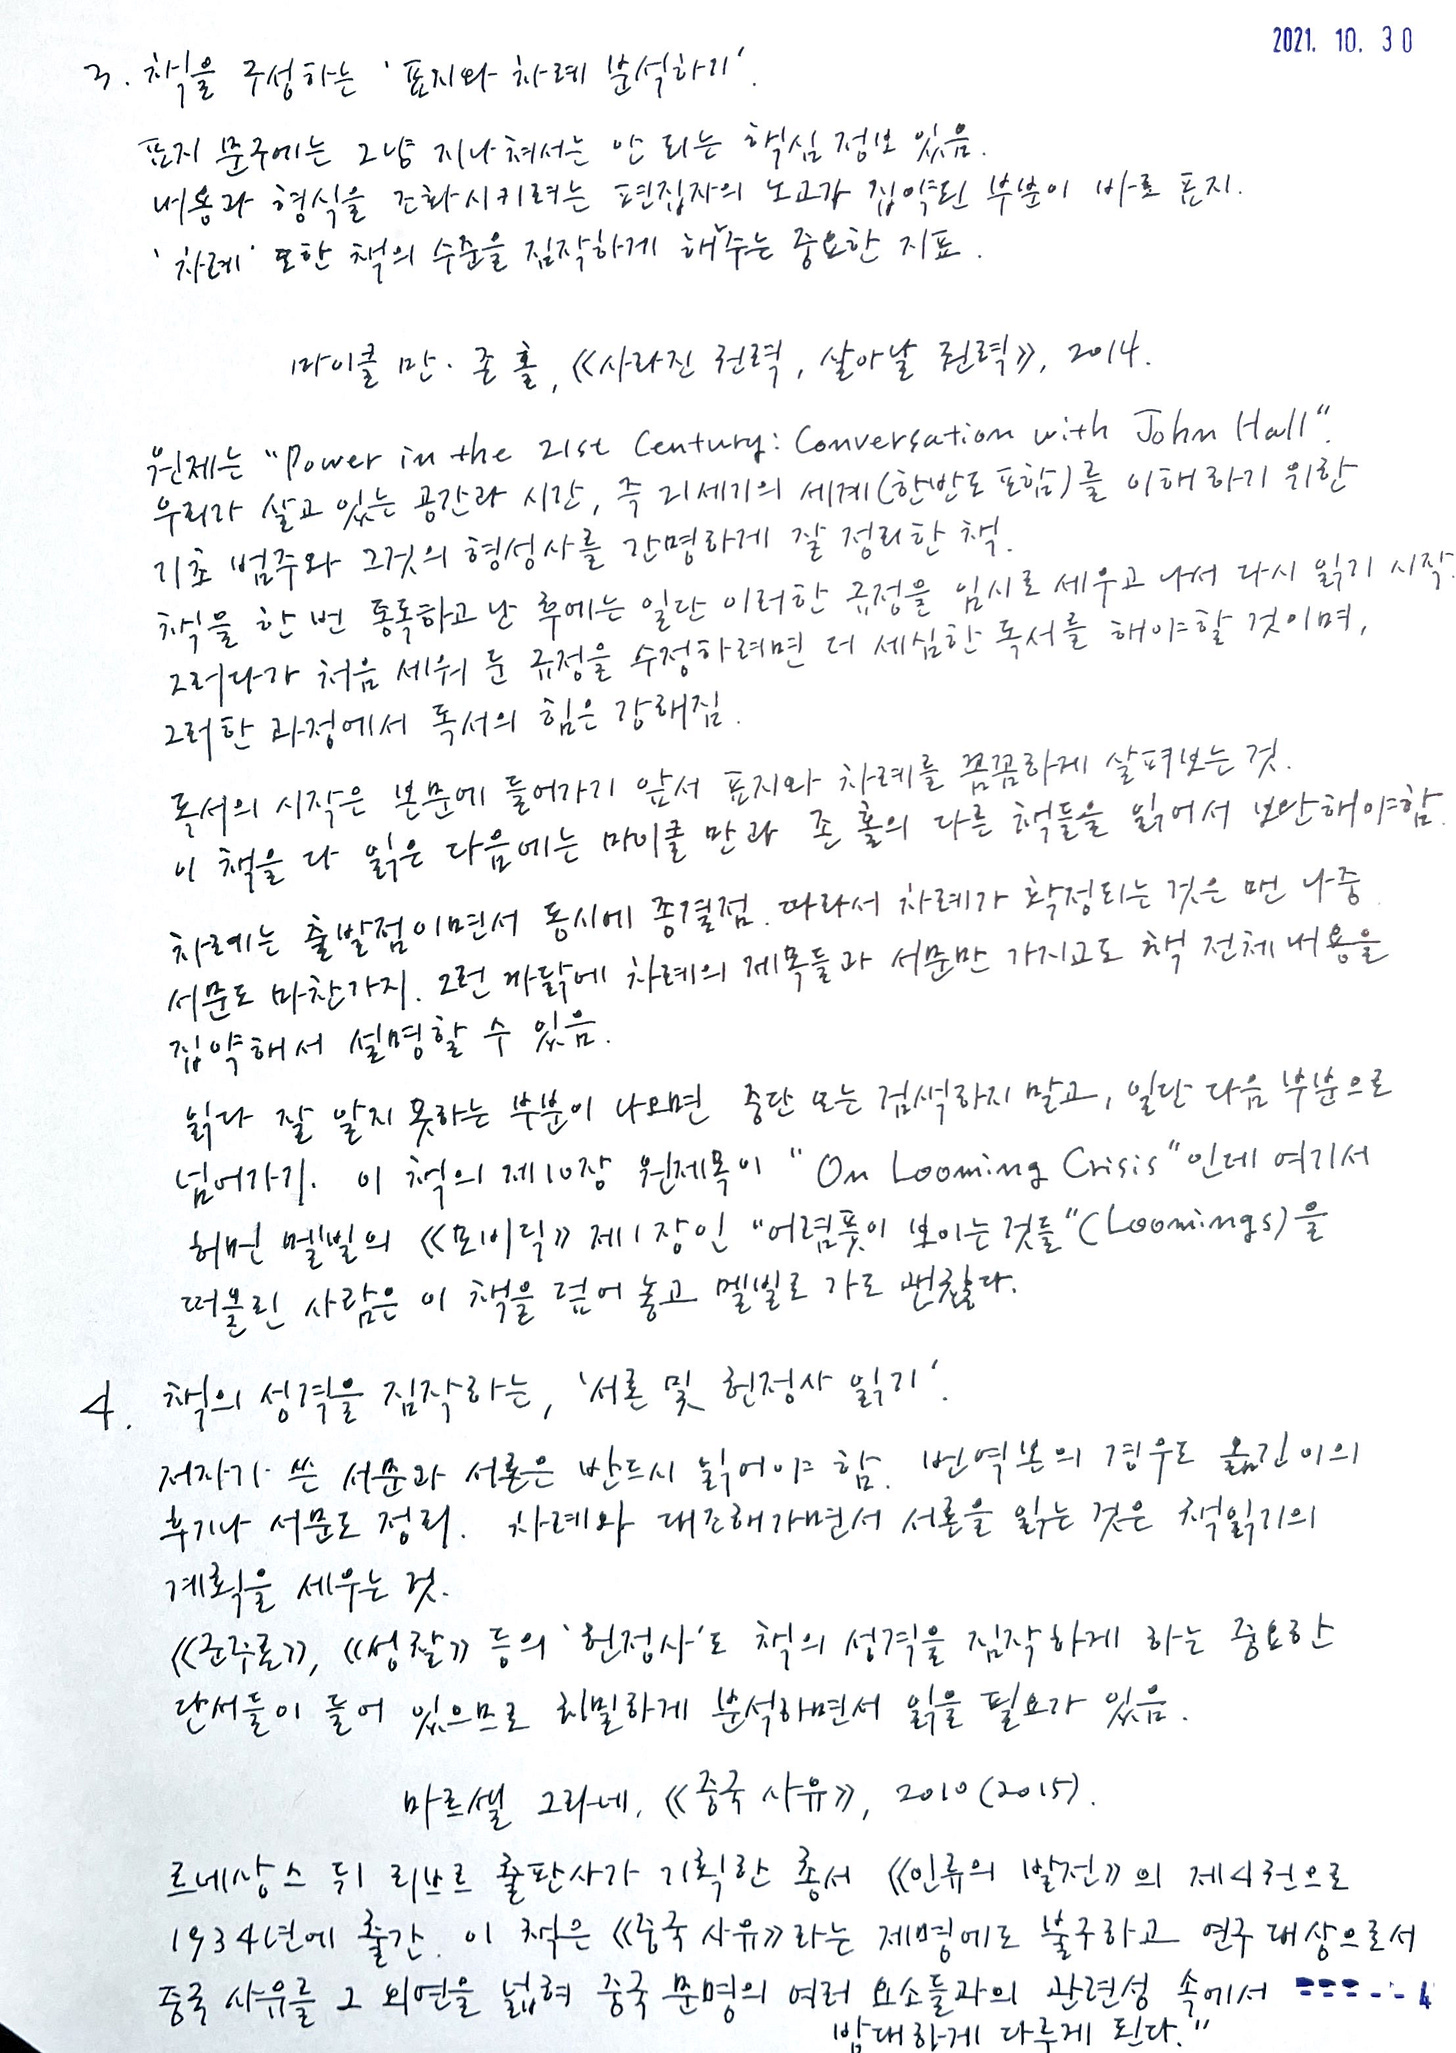 2021. 10. 30
3. 책을 구성하는 '표지와 차례 분석하기'.
표지 문구에는 그냥 지나쳐서는 안 되는 핵심 정보 있음.
내용과 형식을 조화시키려는 편집자의 노고가 집약된 부분이 바로 표지.
'차례' 또한 책의 수준을 짐작하게 해주는 중요한 지표.
마이클 만·존 홀, 《사라진 권력, 살아날 권력》, 2014.
원제는 "Power in the 21st Century: Conversation with John Hall".
우리가 살고 있는 공간과 시간, 즉 21세기의 세계(한반도 포함)를 이해하기 위한
기초 범주와 그것의 형성사를 간명하게 잘 정리한 책.
책을 한 번 통독하고 난 후에는 일단 이러한 규정을 임시로 세우고 나서 다시 읽기 시작.
그러다가 처음 세워 둔 규정을 수정하려면 더 세심한 독서를 해야할 것이며,
그러한 과정에서 독서의 힘은 강해짐.
독서의 시작은 본문에 들어가기 앞서 표지와 차례를 꼼꼼하게 살펴보는 것.
이 책을 다 읽은 다음에는 마이클 만과 존 홀의 다른 책들을 읽어서 보완해야함.
차례는 출발점이면서 동시에 종결점. 따라서 차례가 확정되는 것은 맨 나중.
서문도 마찬가지. 그런 까닭에 차례의 제목들과 서문만 가지고도 책 전체 내용을
집약해서 설명할 수 있음.
읽다 잘 알지 못하는 부분이 나오면 중단 또는 검색하지 말고, 일단 다음 부분으로
넘어가기. 이 책의 제10장 원제목이 "On Looming Crisis"인데 여기서
허먼 멜빌의 《모비딕》 제1장인 "어렴풋이 보이는 것들"(Loomings)을
떠올린 사람은 이 책을 덮어 놓고 멜빌로 가도 괜찮다.
4. 책의 성격을 짐작하는, '서론 및 헌정사 읽기'.
저자가 쓴 서문과 서론은 반드시 읽어야 함. 번역본의 경우도 옮긴이의
후기나 서문도 정리. 차례와 대조해가면서 서론을 읽는 것은 책읽기의
계획을 세우는 것.
《군주론》, 《성찰》 등의 '헌정사'도 책의 성격을 짐작하게 하는 중요한
단서들이 들어 있으므로 치밀하게 분석하면서 읽을 필요가 있음.
마르셀 그라네, 《중국 사유》, 2010(2015).
르네상스 뒤 리브르 출판사가 기획한 총서 《인류의 발전》의 제4권으로
1934년에 출간. 이 책은 《중국 사유》라는 제명에도 불구하고 연구 대상으로서
중국 사유를 그 외연을 넓혀 중국 문명의 여러 요소들과의 관련성 속에서
밤대하게 다루게 된다."